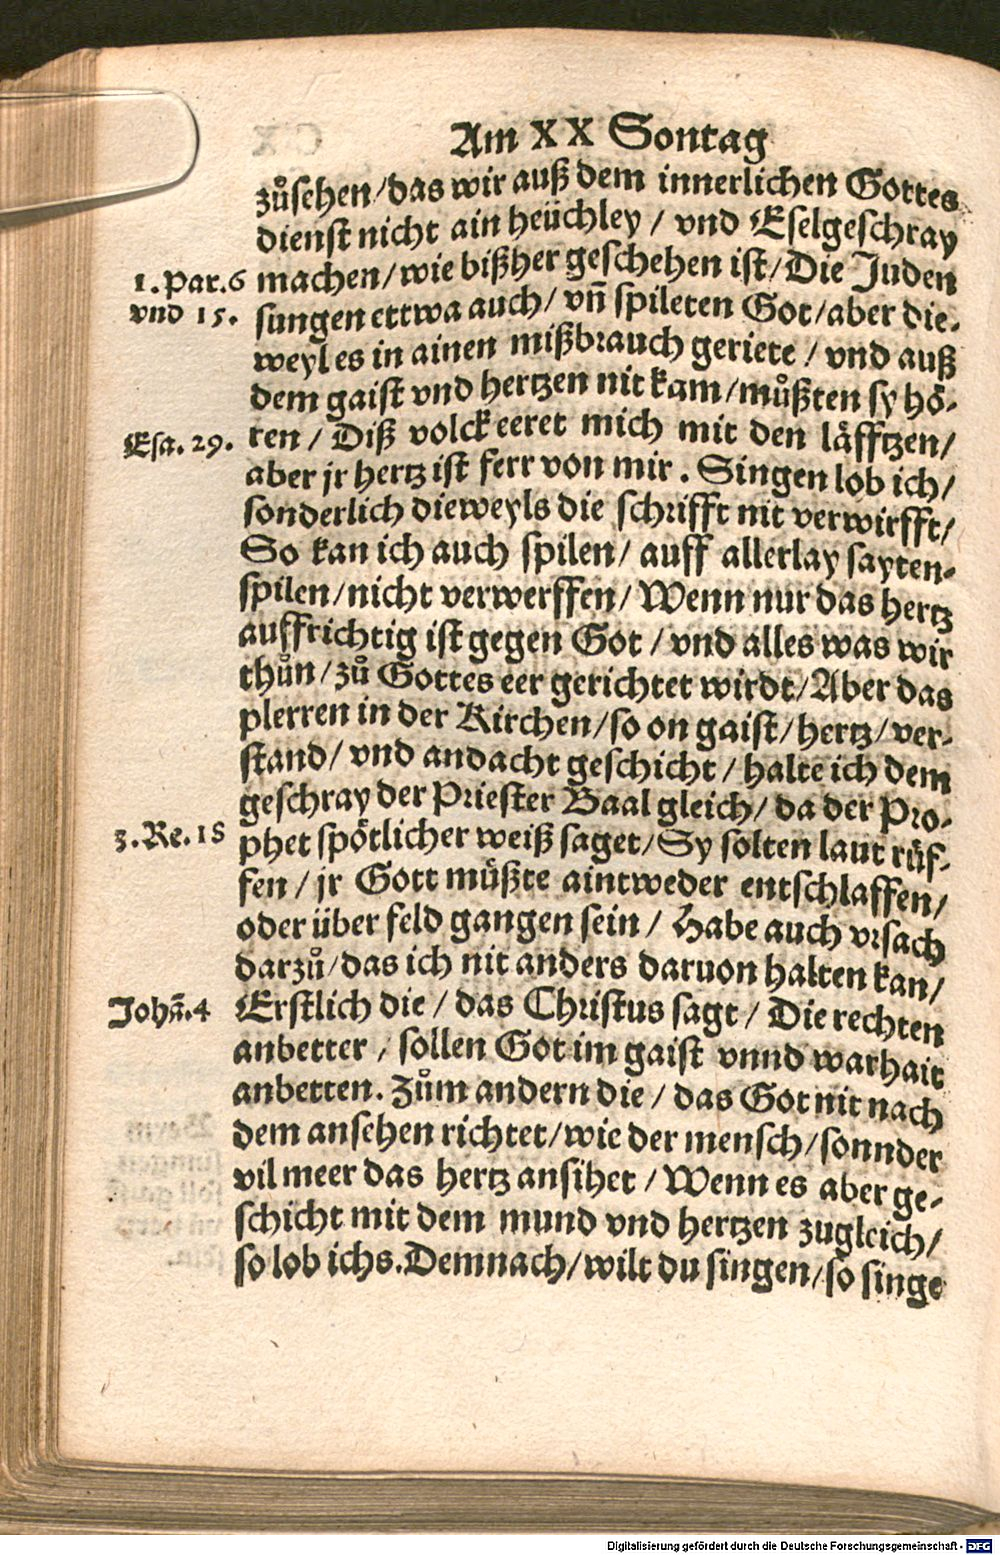 Am XX Sontag
zůsehen/das wir auß dem innerlichen Gottes
dienst nicht ain heüchley / vnd Eselgeschray
1.Par.6 machen/wie bißher geschehen ist/Die Juden
vnd 15. sungen ettwa auch/ vñ spileten Got/aber die-
weyl es in ainen mißbrauch geriete / vnd auß
dem gaist vnd hertzen nit kam/můßten sy hö-
Esa. 29. ren / Diß volck eeret mich mit den läfftzen/
aber jr hertz ist ferr von mir . Singen lob ich/
sonderlich dieweyls die schrifft nit verwirfft/
So kan ich auch spilen/ auff allerlay sayten-
spilen/nicht verwerffen/ Wenn nur das hertz
auffrichtig ist gegen Got / vnd alles was wir
thůn/zů Gottes eer gerichtet wirdt/Aber das
plerren in der Kirchen/so on gaist/hertz/ver-
stand/ vnd andacht geschicht / halte ich dem
geschray der Priester Baal gleich/ da der Pro-
3.Re.18 phet spötlicher weiß saget/Sy solten laut růf-
fen / jr Gott můßte aintweder entschlaffen/
oder über feld gangen sein / Habe auch vrsach
darzů/das ich nit anders daruon halten kan/
Johã.4 Erstlich die / das Christus sagt / Die rechten
anbetter / sollen Got im gaist vnnd warhait
anbetten. Zům andern die / das Got nit nach
dem ansehen richtet/wie der mensch/sonnder
vil meer das hertz ansihet / Wenn es aber ge-
schicht mit dem mund vnd hertzen zugleich/
so lob ichs.Demnach/wilt du singen/so singe
Digitalisierung gefördert durch die Deutsche Forschungsgemeinschaft - DFG